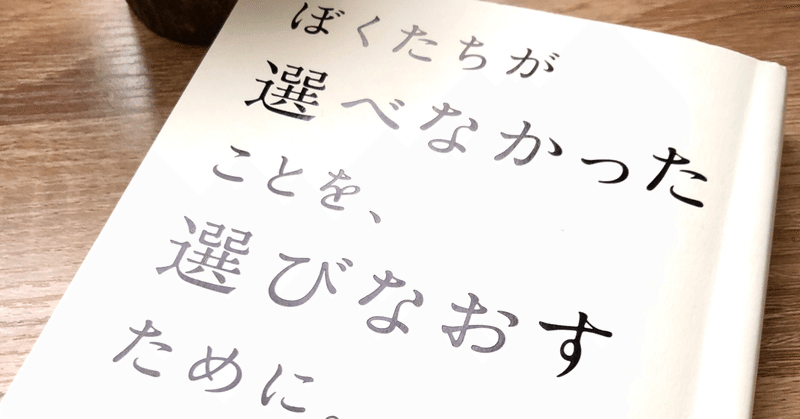 ぼくたちが
選べなかった
ことを、
選びなおす
ために。